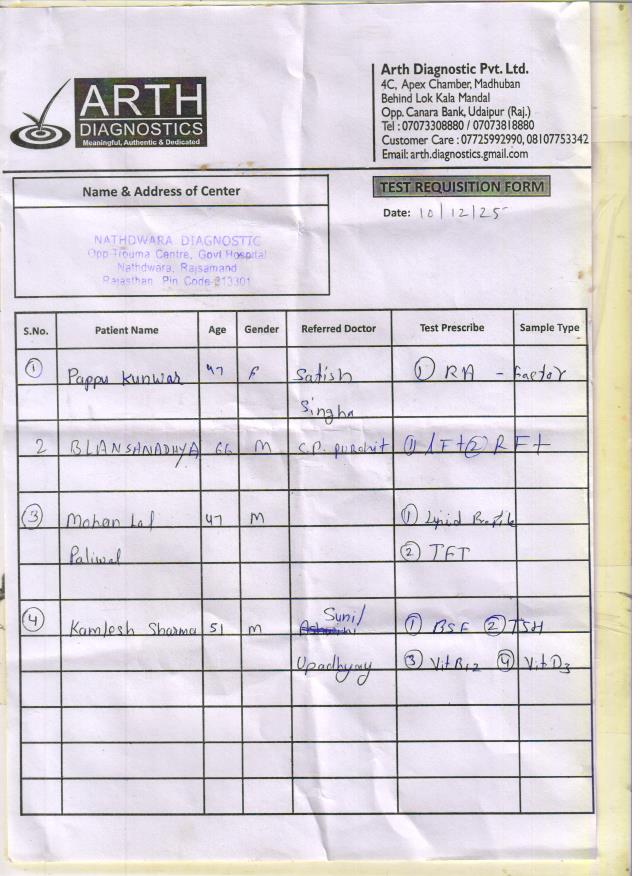 ARTH
DIAGNOSTICS
Meaningful, Authentic & Dedicated
Arth Diagnostic Pvt. Ltd.
4C, Apex Chamber, Madhuban
Behind Lok Kala Mandal
Opp. Canara Bank, Udaipur (Raj.)
Tel : 07073308880 / 07073818880
Customer Care : 07725992990, 08107753342
Email: arth.diagnostics.gmail.com
Name & Address of Center
TEST REQUISITION FORM
Date: 10/12/25
NATHDWARA DIAGNOSTIC
Opp Trouma Centre, Govt Hospital
Nathdwara, Rajsamand
Rajasthan Pin Code-313301
S.No. Patient Name Age Gender Referred Doctor Test Prescribe Sample Type
① Pappu Kunwar 47 F Satish ① RA - factor
Singha
2 66 M C.P. Purohit ① LFt ② RFt
③ Mohan Lal 47 M ① Lipid Profile
Paliwal ② TFT
④ Kamlesh Sharma 51 M Sunil ① BSF ② TSH
Upadhyay ③ Vit B12 ④ Vit D3